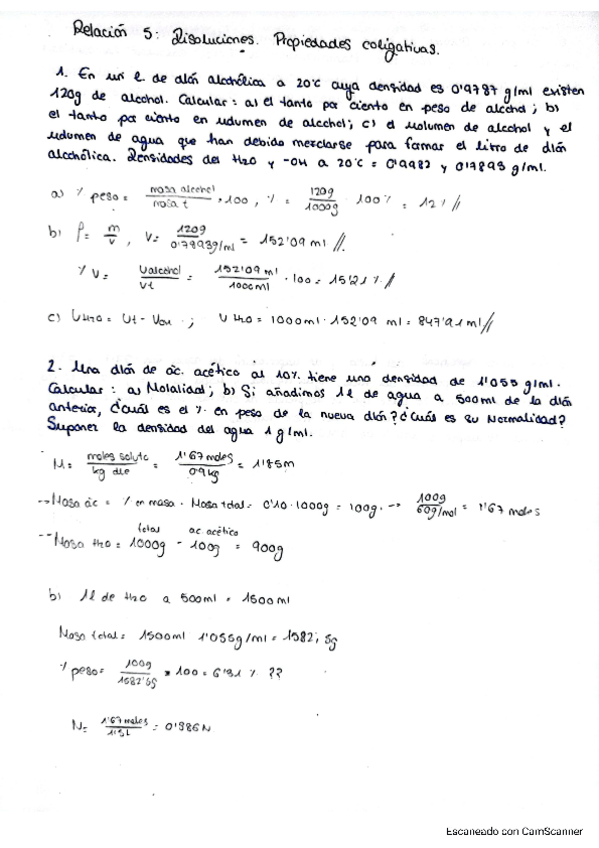 Relación 5: Disoluciones. Propiedades coligativas.
1. En un l. de dlón alcohólica a 20°C cuya densidad es 0'9787 g/ml existen
120g de alcohol. Calcular: a) el tanto por ciento en peso de alcohol; b)
el tanto por ciento en volumen de alcohol; c) el volumen de alcohol y el
volumen de agua que han debido mezclarse para formar el litro de dlón
alcohólica. Densidades del H2O y -OH a 20°C = 0'9982 y 0'7893 g/ml.
a) % peso = masa alcohol / masa t · 100, % = 120g / 1000g · 100% = 12% //
b) ρ = m / v, V = 120g / 0'7893g/ml = 152'09 ml //.
% V = Valcohol / Vt = 152'09 ml / 1000ml · 100 = 15'21 % //
c) VH2O = Vt - VOH ; VH2O = 1000ml - 152'09 ml = 847'91 ml //
2. Una dlón de ác. acético al 10% tiene una densidad de 1'055 g/ml.
Calcular: a) Molalidad; b) Si añadimos 1l de agua a 500ml de la dlón
anterior, ¿Cuál es el % en peso de la nueva dlón? ¿Cuál es su Normalidad?
Suponer la densidad del agua 1 g/ml.
M = moles soluto / kg dte = 1'67 moles / 0'9 kg = 1'85m
→ Masa ác = % en masa · Masa total = 0'10 · 1000g = 100g. → 100g / 60g/mol = 1'67 moles
total ac acético
→ Masa H2O = 1000g - 100g = 900g
b) 1l de H2O a 500ml = 1500ml
Masa total = 1500ml 1'055g/ml = 1582,5g
% peso = 100g / 1582'5g * 100 = 6'31 % ??
N = 1'67 moles / 1'5L
Escaneado con CamScanner